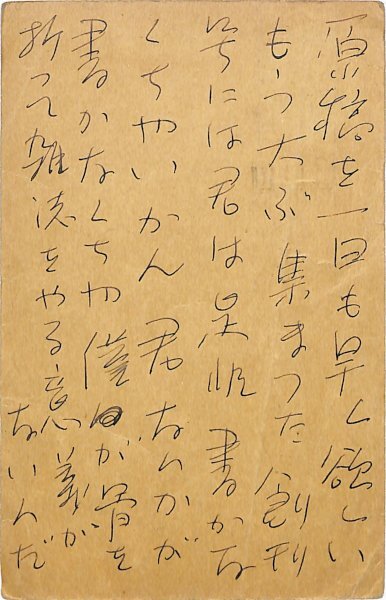 原稿を一日も早く欲しい
もう大ぶ集まつた 創刊
号には君は是非 書かな
くちやいかん 君なんかが
書かなくちや僕が骨を
折つて雑誌をやる意義が
ないんだ